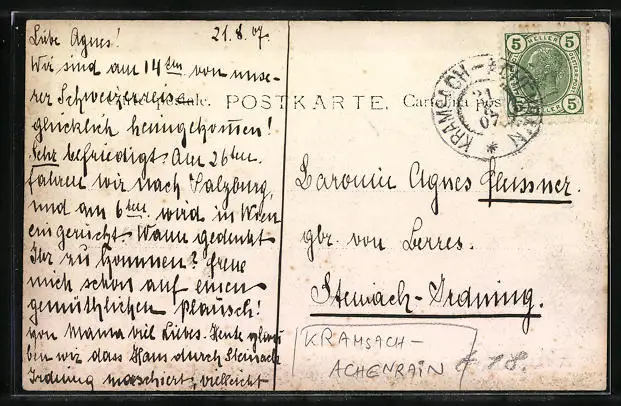 Liebe Agnes! 21.8.07.
Wir sind am 14ten von unse-
rer Schweizerreise
glücklich heimgekommen!
Sehr befriedigt. Am 26ten
fahren wir nach Salzburg,
und am 6ten wird in Wien
eingerückt. Wann gedenkst
Ihr zu kommen? freue
mich schon auf einen
gemüthlichen Plausch!
von Mama viel Liebes. Heute glau
ben wir dass Hans durch Steinach
Irdning marschiert, vielleicht
POSTKARTE.
5 HELLER 5
5 5
KRAMSACH-ACHENRAIN
21 8 07
Baronin Agnes Gleissner.
gbr. von Berres.
Steinach-Irdning.
KRAMSACH-
ACHENRAIN